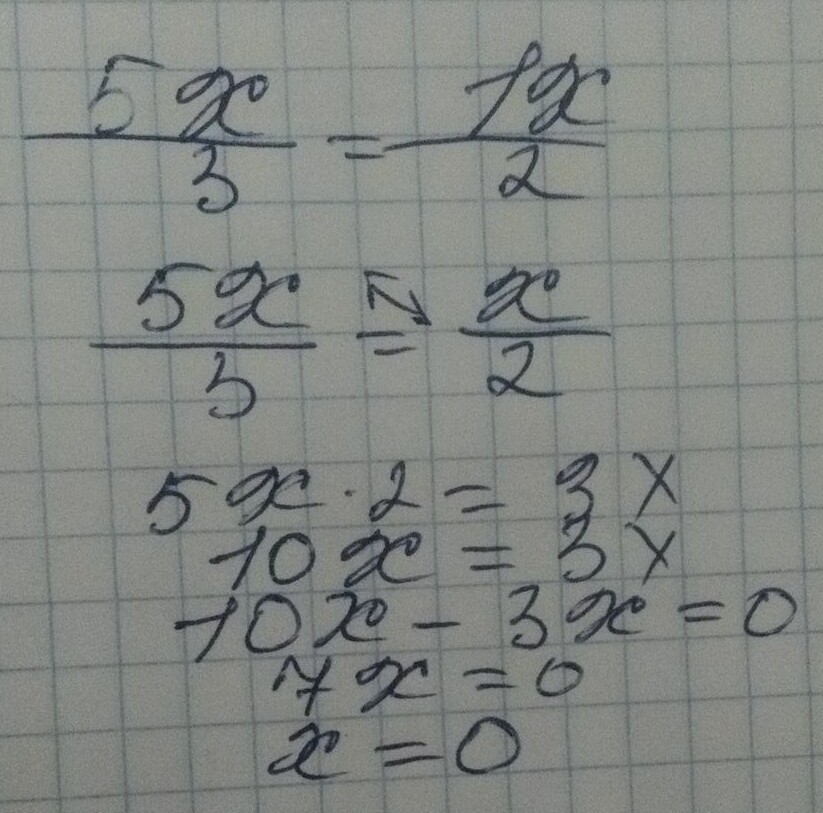 5x/3 = 1x/2
5x/3 = x/2
5x · 2 = 3x
10x = 3x
10x - 3x = 0
7x = 0
x = 0